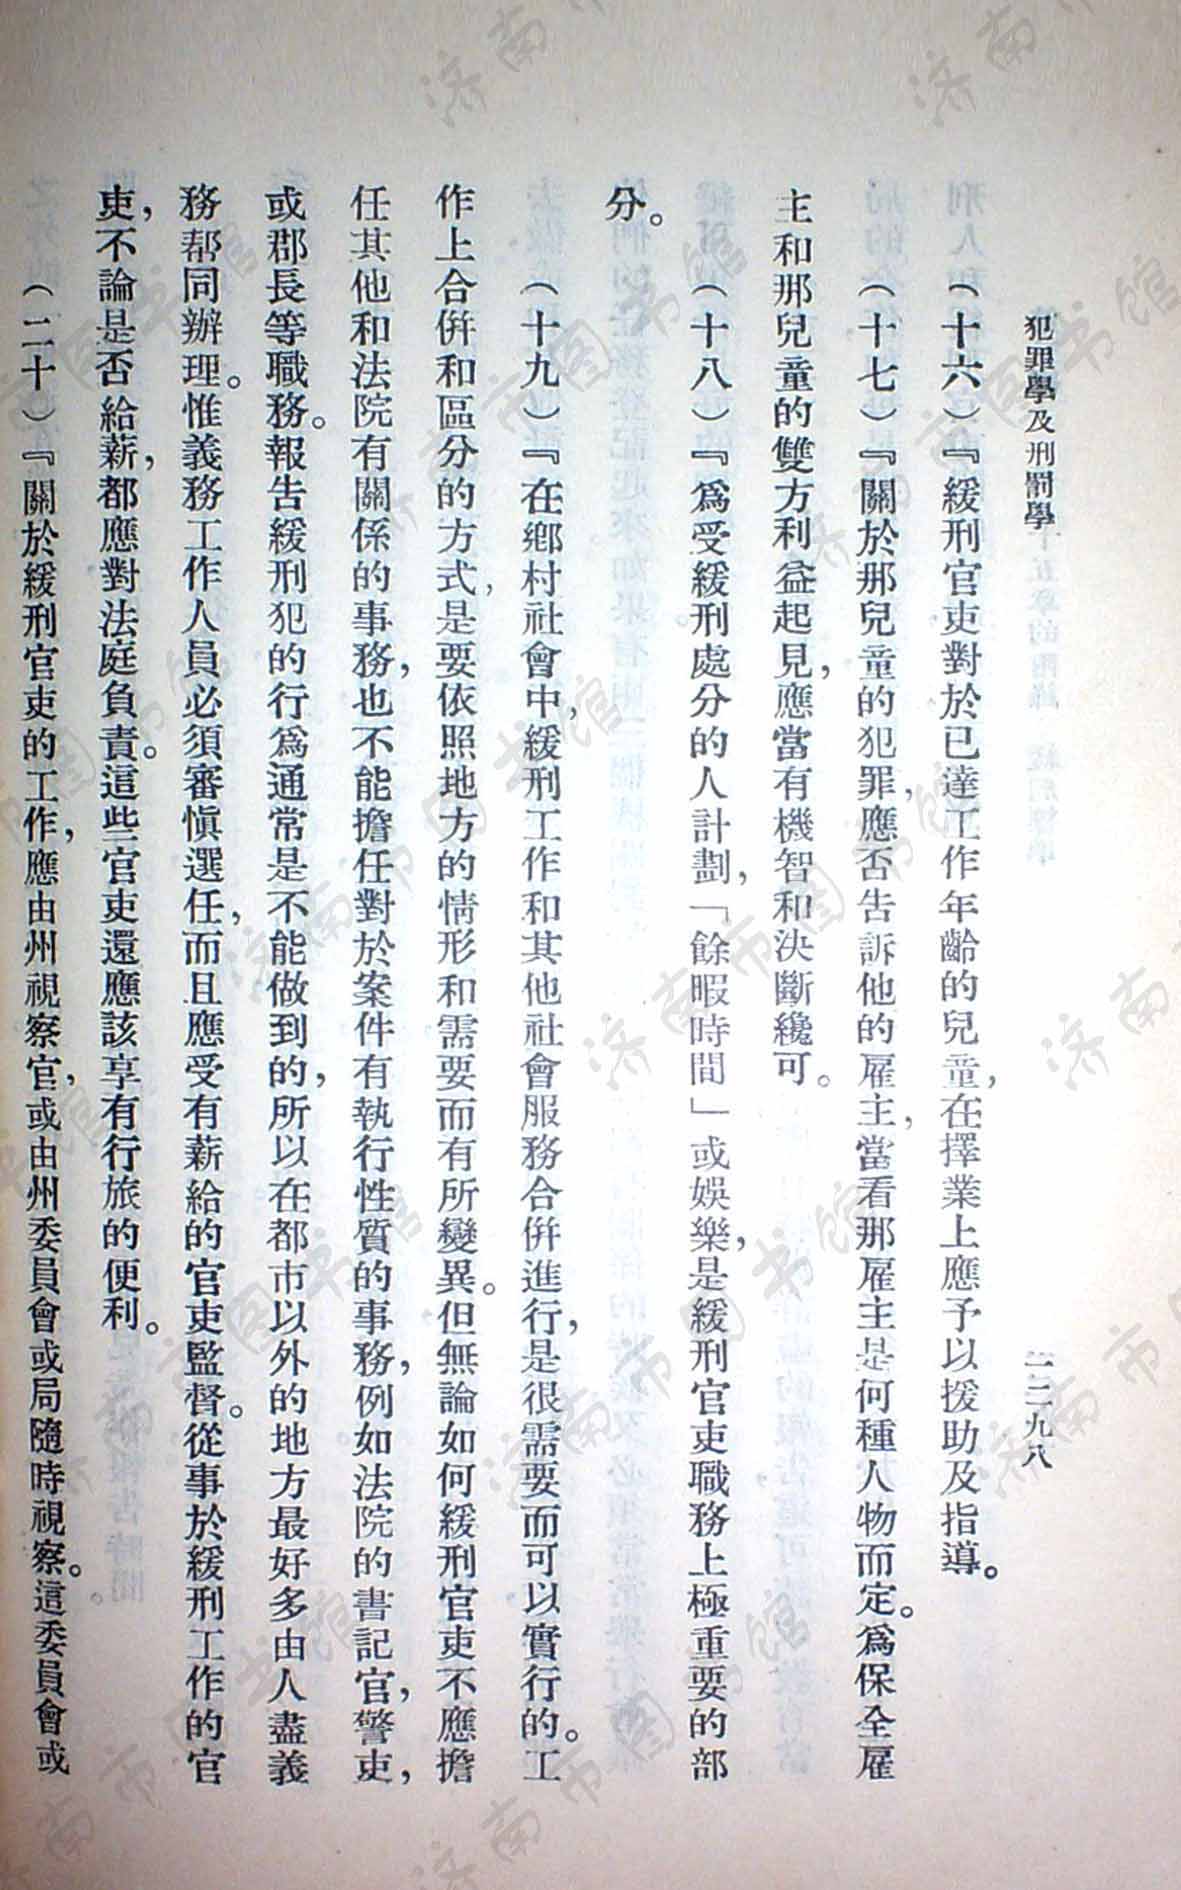 犯罪學及刑罰學
一二九八
（十六）『緩刑官吏對於已達工作年齡的兒童，在擇業上應予以援助及指導。
（十七）『關於那兒童的犯罪，應否告訴他的雇主，當看那雇主是何種人物而定。爲保全雇
主和那兒童的雙方利益起見，應當有機智和決斷纔可。
（十八）『爲受緩刑處分的人計劃，「餘暇時間」或娛樂，是緩刑官吏職務上極重要的部
分。
（十九）『在鄉村社會中，緩刑工作和其他社會服務合併進行，是很需要而可以實行的。工
作上合併和區分的方式，是要依照地方的情形和需要而有所變異。但無論如何緩刑官吏不應擔
任其他和法院有關係的事務，也不能擔任對於案件有執行性質的事務，例如法院的書記官，警吏，
或郡長等職務。報告緩刑犯的行爲通常是不能做到的，所以在都市以外的地方最好多由人盡義
務帮同辦理。惟義務工作人員必須審愼選任，而且應受有薪給的官吏監督。從事於緩刑工作的官
吏，不論是否給薪，都應對法庭負責。這些官吏還應該享有行旅的便利。
（二十）『關於緩刑官吏的工作，應由州視察官，或由州委員會或局隨時視察。這委員會或
济南市图书馆